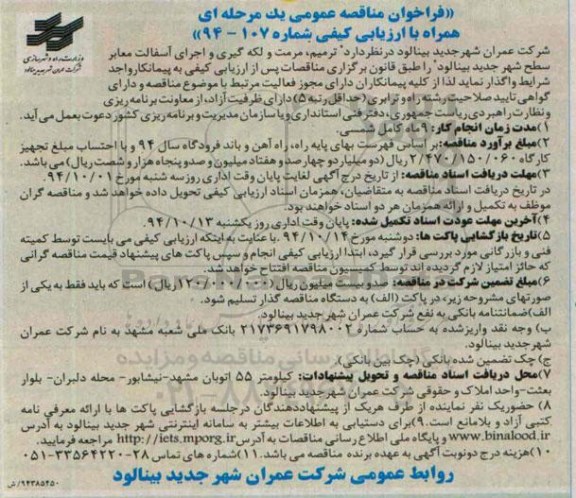 «فراخوان مناقصه عمومی یك مرحله ای
همراه با ارزیابی کیفی شماره ۱۰۷ - ۹۴»
وزارت راه و شهرسازی
شرکت عمران شهر جدید بینالود
شرکت عمران شهر جدید بینالود در نظر دارد" ترمیم، مرمت و لکه گیری و اجرای آسفالت معابر
سطح شهر جدید بینالود" را طبق قانون برگزاری مناقصات پس از ارزیابی کیفی به پیمانکار واجد
شرایط واگذار نماید لذا از کلیه پیمانکاران دارای مجوز فعالیت مرتبط با موضوع مناقصه و دارای
گواهی تایید صلاحیت رشته راه و ترابری (حداقل رتبه ۵) دارای ظرفیت آزاد، از معاونت برنامه ریزی
و نظارت راهبردی ریاست جمهوری، دفتر فنی استانداری و یا سازمان مدیریت و برنامه ریزی کشور دعوت بعمل می آید.
۱)مدت زمان انجام کار: ۹ ماه کامل شمسی.
۲)مبلغ برآورد مناقصه: بر اساس فهرست بهای پایه راه، راه آهن و باند فرودگاه سال ۹۴ و با احتساب مبلغ تجهیز
کارگاه ۲/۴۷۰/۱۵۰/۰۶۰ ریال (دو میلیارد و چهارصد و هفتاد میلیون و صد و پنجاه هزار و شصت ریال) می باشد.
۳)مهلت دریافت اسناد مناقصه: از تاریخ درج آگهی لغایت پایان وقت اداری روز سه شنبه مورخ ۹۴/۱۰/۰۱.
در تاریخ دریافت اسناد مناقصه به متقاضیان، همزمان اسناد ارزیابی کیفی تحویل داده خواهد شد و مناقصه گران
موظف به تکمیل و ارائه همزمان هر دو اسناد خواهند بود.
۴)آخرین مهلت عودت اسناد تکمیل شده: پایان وقت اداری روز یکشنبه ۹۴/۱۰/۱۳.
۵)تاریخ بازگشایی پاکت ها: دوشنبه مورخ ۹۴/۱۰/۱۴. با عنایت به اینکه ارزیابی کیفی می بایست توسط کمیته
فنی و بازرگانی مورد بررسی قرار گیرد، ابتدا ارزیابی کیفی انجام و سپس پاکت های پیشنهاد قیمت مناقصه گرانی
که حائز امتیاز لازم گردیده اند توسط کمیسیون مناقصه افتتاح خواهد شد.
۶)مبلغ تضمین شرکت در مناقصه: صد و بیست میلیون ریال (۱۲۰/۰۰۰/۰۰۰ریال) است که باید فقط به یکی از
صورتهای مشروحه زیر، در پاکت (الف) به دستگاه مناقصه گذار تسلیم شود.
الف)ضمانتنامه بانکی به نفع شرکت عمران شهر جدید بینالود.
ب) وجه نقد واریز شده به حساب شماره ۲۱۷۳۶۹۱۷۹۸۰۰۲ بانک ملی شعبه مشهد به نام شرکت عمران
شهر جدید بینالود.
ج) چک تضمین شده بانکی (چک بین بانکی).
۷)محل دریافت اسناد مناقصه و تحویل پیشنهادات: کیلومتر ۵۵ اتوبان مشهد-نیشابور- محله دلبران- بلوار
بعثت-واحد املاک و حقوقی شرکت عمران شهر جدید بینالود.
۸) حضور یک نفر نماینده از طرف هریک از پیشنهاددهندگان در جلسه بازگشایی پاکت ها با ارائه معرفی نامه
کتبی آزاد و بلامانع است.۹)برای دستیابی به اطلاعات بیشتر به سامانه اینترنتی شهر جدید بینالود به آدرس
www.binalood.ir و پایگاه ملی اطلاع رسانی مناقصات به آدرس http://iets.mporg.ir مراجعه فرمایید.
۱۰)هزینه درج دو نوبت آگهی به عهده برنده مناقصه می باشد.۱۱)شماره های تماس ۲۸-۳۳۵۶۴۲۲۰-۰۵۱
روابط عمومی شرکت عمران شهر جدید بینالود
۹۴۳۸۵۴۵۰/ش